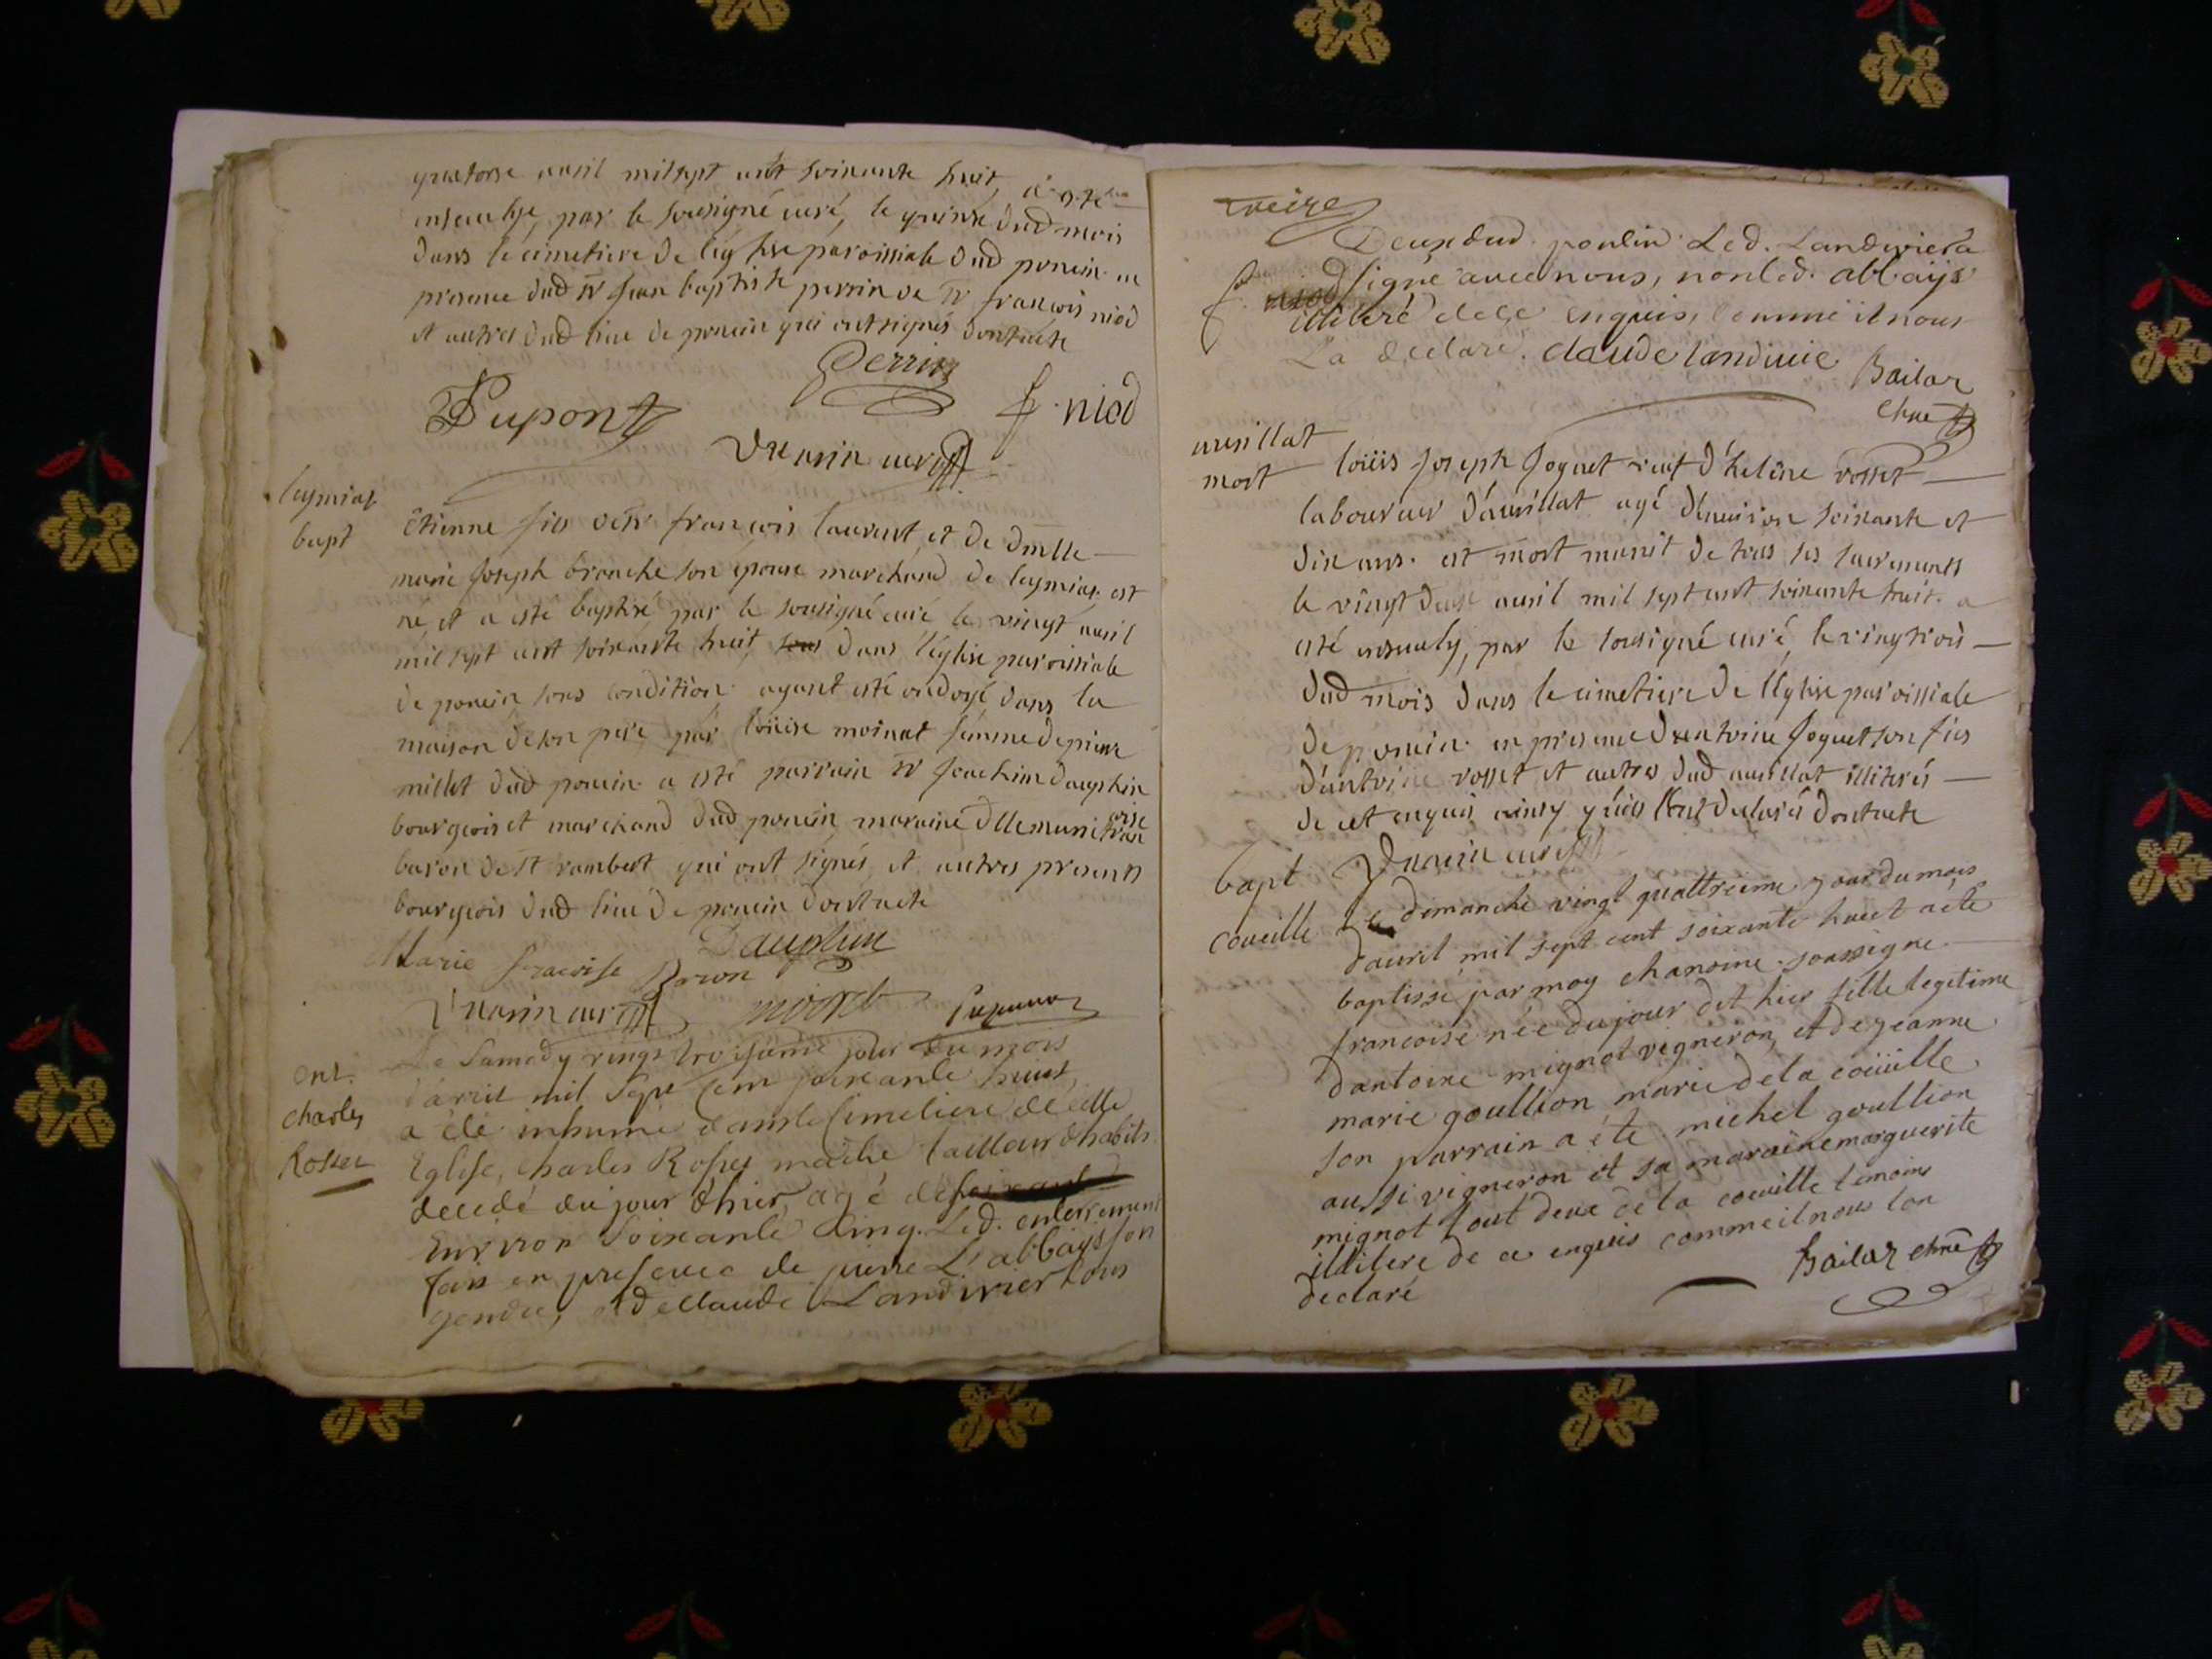 quatorse auril mil sept cent soixante huit, a esté
enseuelye, par le sousigné curé, le quinse dud mois
dans le cimetiere de leglise paroissiale dud poncin en
presence dud sr jean baptiste perrin de sr françois niod
et autres dud lieu de poncin qui ont signés dont acte
Perrin
Dupont
f. niod
curé
leymiat
bapt
Etienne fils de sr françois laurent et de dmlle
marie joseph branche son epouse marchand de leymiat est
né et a esté baptisé par le sousigné curé le vingt auril
mil sept cent soixante huit sous dans l'eglise paroissiale
de poncin sous condition ayant esté ondoyé dans la
maison de son pere par loüise moinat femme de pierre
millet dud poncin a esté parrain sr joachim dauphin
bourgeois et marchand dud poncin maraine dlle marie fran
coise
baron de st rambert qui ont signés, et autres presents
bourgeois dud lieu de poncin dont acte
Dauphin
Marie francoise Baron
curé
Ent.
charles
Rosset
Le Samedy vingt troisieme jour du mois
d'avril mil Sept Cent soixante huit,
a été inhumé dans le Cimetiere de cette
Eglise, Charles Rosset maitre tailleur d'habits
decedé du jour d'hier, agé de soixante
Environ Soixante Cinq. Led. enterrement
fait en presence de pierre L'abbaÿs son
gendre, et de Claude Landivier tous
treize
Deux dud. poncin Led. Landivier a
signé avec nous, non led. abbaÿs
f. niod
illiteré de ce enquis, comme il nous
La declaré. claude landiuie Bailar
chne
aurillat
mort
loüis joseph joguet veuf d'helène rosset
laboureur d'aurillat agé d'enuiron soixante et
dix ans. est mort munit de tous ses sacrements
le vingt deux auril mil sept cent soixante huit. a
esté enseuely, par le sousigné curé, le vingt trois
dud mois dans le cimetiere de l'eglise paroissiale
de poncin en presence d'antoine joguet son fils
d'antoine rosset et autres dud aurillat illiterés
de cet enquis ainsy qu'ils l'ont declaré dont acte
curé
bapt
coueille
le dimanche vingt quattrieme jour du mois
dauril mil sept cent soixante huit a été
baptissé par moy chanoine soussigne
francoise née du jour det hier fille legitime
dantoine mignot vigneron et de jeanne
marie goullion marie de la coüille
son parrain a été michel goullion
aussi vigneron et sa maraine marguerite
mignot tout deux de la coeuille temoins
illitere de ce enquis comme il nous lon
declaré
Bailar chne